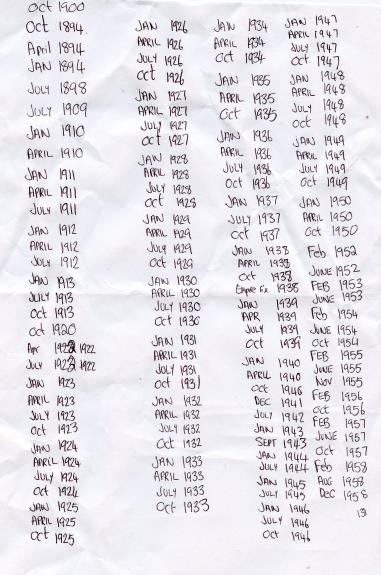 Oct 1900
Oct 1894.
April 1894
JAN 1894
JULY 1898
JULY 1909
JAN 1910
APRIL 1910
JAN 1911
APRIL 1911
JULY 1911
JAN 1912
APRIL 1912
JULY 1912
JAN 1913
JULY 1913
Oct 1913
Oct 1920
Apr 1922
JULY 1922
JAN 1923
APRIL 1923
JULY 1923
Oct 1923
JAN 1924
APRIL 1924
JULY 1924
Oct 1924
JAN 1925
APRIL 1925
Oct 1925
JAN 1926
APRIL 1926
JULY 1926
Oct 1926
JAN 1927
APRIL 1927
JULY 1927
Oct 1927
JAN 1928
APRIL 1928
JULY 1928
Oct 1928
JAN 1929
APRIL 1929
JULY 1929
Oct 1929
JAN 1930
APRIL 1930
JULY 1930
Oct 1930
JAN 1931
APRIL 1931
JULY 1931
Oct 1931
JAN 1932
APRIL 1932
JULY 1932
Oct 1932
JAN 1933
APRIL 1933
JULY 1933
Oct 1933
JAN 1934
APRIL 1934
Oct 1934
JAN 1935
APRIL 1935
Oct 1935
JAN 1936
APRIL 1936
JULY 1936
Oct 1936
JAN 1937
JULY 1937
Oct 1937
JAN 1938
APRIL 1938
Oct 1938
Empire Ex 1938
JAN 1939
APR 1939
JULY 1939
Oct 1939
JAN 1940
APRIL 1940
Oct 1940
DEC 1941
JULY 1942
JAN 1943
SEPT 1943
JAN 1944
JULY 1944
JAN 1945
JULY 1945
JAN 1946
JULY 1946
Oct 1946
JAN 1947
APRIL 1947
JULY 1947
Oct 1947
JAN 1948
APRIL 1948
JULY 1948
Oct 1948
JAN 1949
APRIL 1949
JULY 1949
Oct 1949
JAN 1950
APRIL 1950
Oct 1950
Feb 1952
JUNE 1952
FEB 1953
JUNE 1953
Feb 1954
JUNE 1954
Oct 1954
FEB 1955
JUNE 1955
Nov 1955
FEB 1956
Oct 1956
FEB 1957
JUNE 1957
Oct 1957
Feb 1958
AUG 1958
DEC 1958